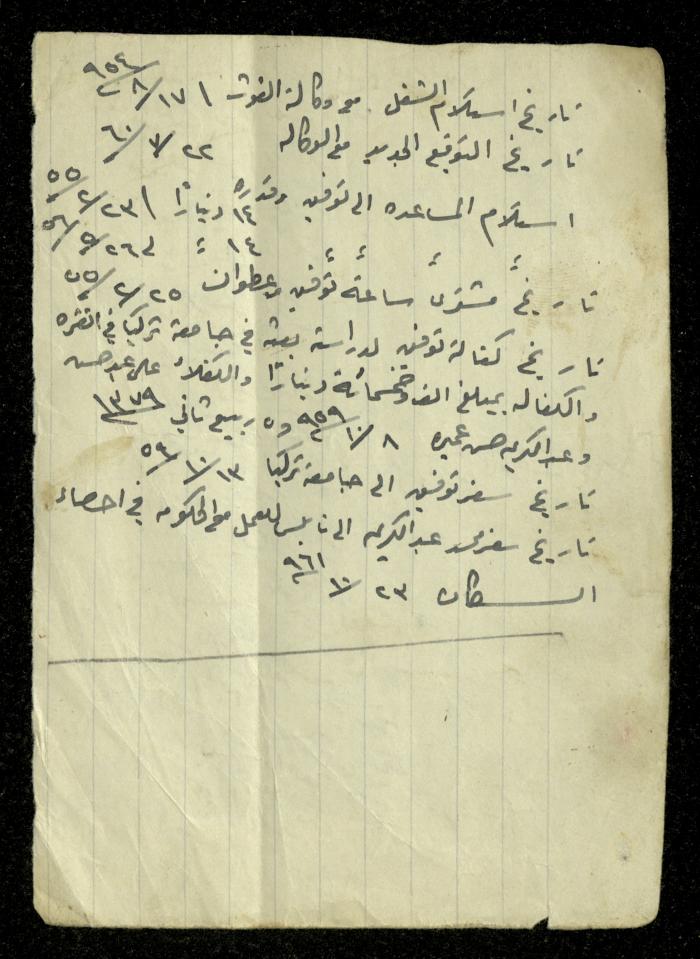 تاريخ استلام الشغل مع وكالة الغوث ١٧/٨/٩٥٤
تاريخ التوقيع الجديد مع الوكاله ٢٢/٧/٦٠
استلام المساعده الى توفيق وقدره ١٤ دينارًا ٢٣/٢/٥٥
١٤ = ٢٦/٥/٥٦
تاريخ مشترى ساعة توفيق وعطوان ٢٥/٢/٥٥
تاريخ كفالة توفيق لدراسة بعثه في جامعة تركيا في انقره
والكفاله بمبلغ الف وخمسمائة دينارًا والكفلاء علي عبد حسن
وعبد الكريم حسن عميره ٨/١٠/٩٥٩ و ٥ ربيع ثاني ١٣٧٩
تاريخ سفر توفيق الى جامعة تركيا ١٣/١٠/٥٩
تاريخ سفر محمد عبد الكريم الى نابلس للعمل مع الحكومه في احصاء
السكان ٢٣/١٠/٩٦١